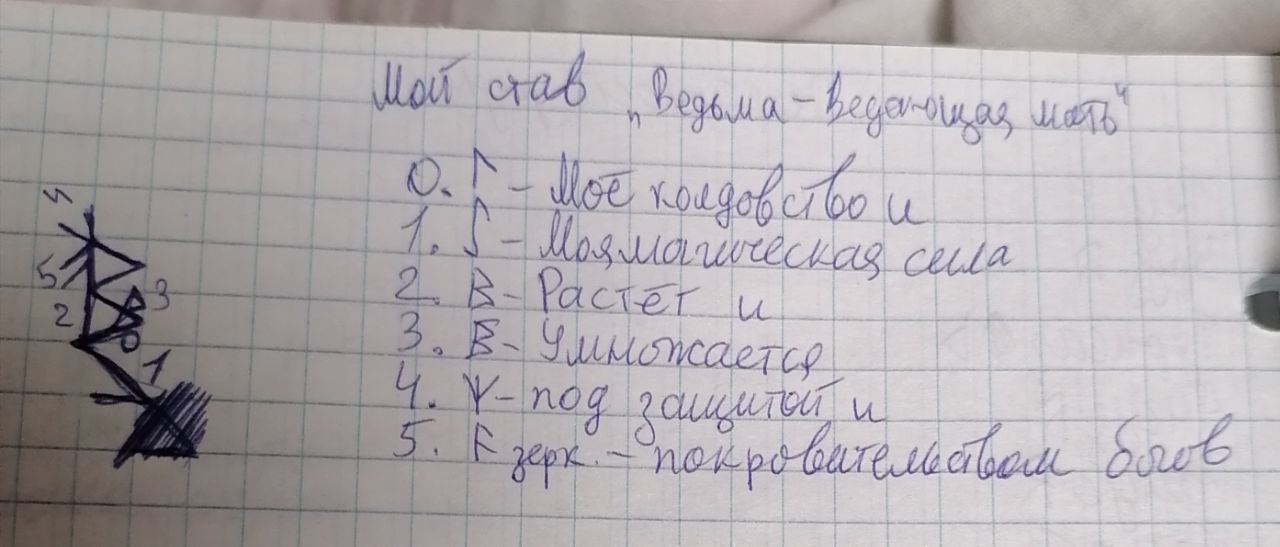 Мой став „Ведьма - Ведающая мать"
0. ᛚ - Моё колдовство и
1. ᛚ - Моя магическая сила
2. ᛒ - Растёт и
3. ᛒ - Умножается
4. ᛉ - под защитой и
5. ᚨ зерк. - покровительством богов
4
5
3
2
1